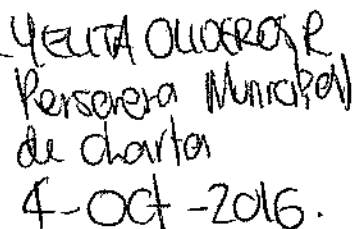 YELITA OLIVEROS R
Personera Municipal
de charta
4-Oct-2016.